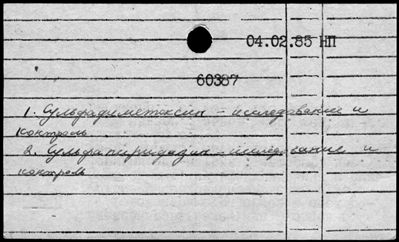 04.02.85 НП
60387
1. Сульфадиметоксин - исследование и
контроль
2. Сульфапиридазин - исследование и
контроль